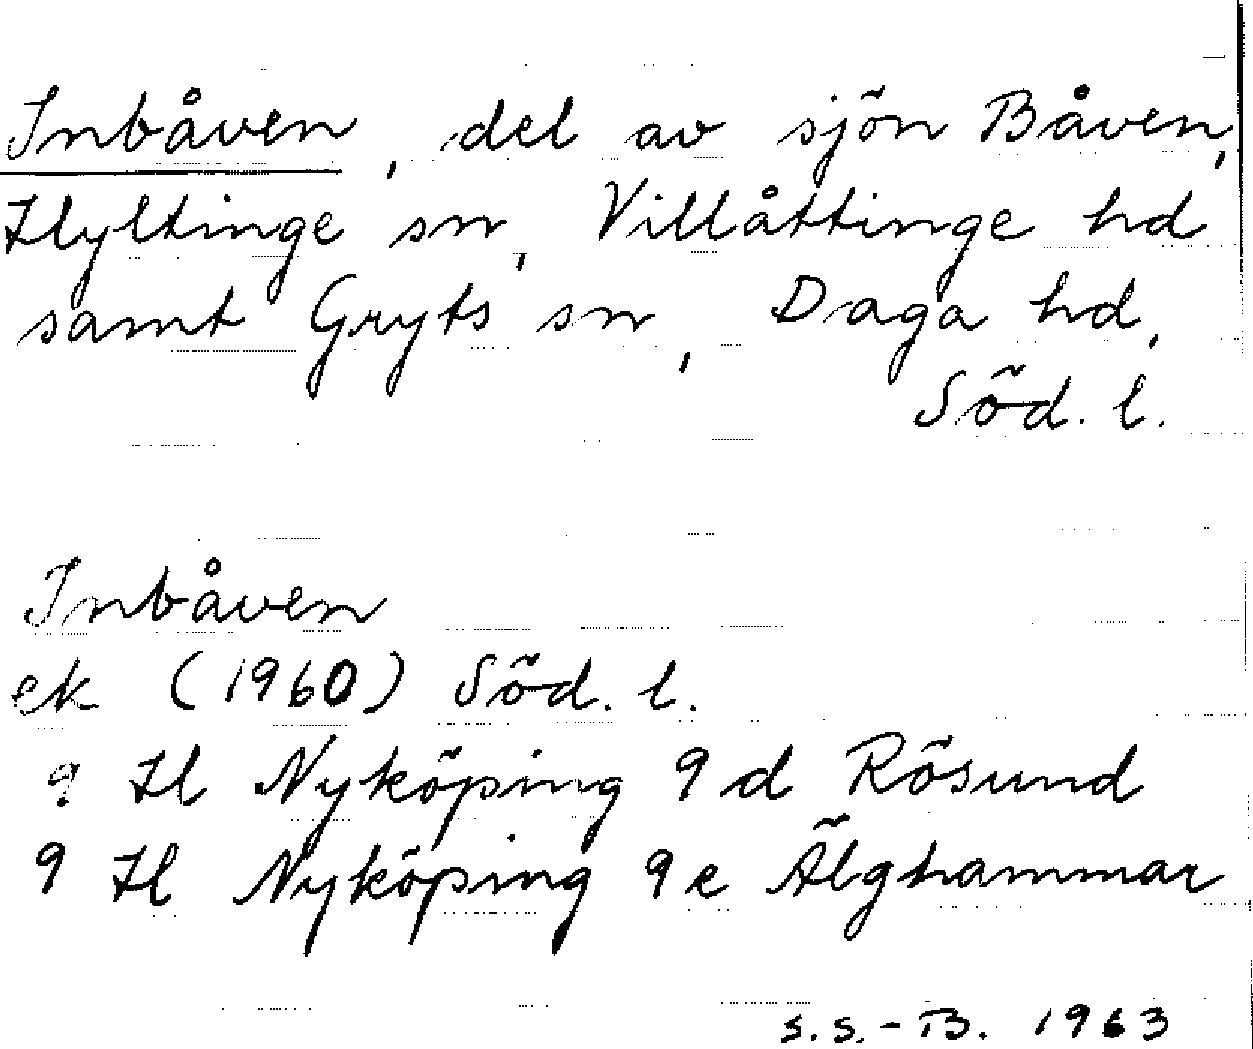 Inbåven, del av sjön Båven,
Hyltinge sn, Villåttinge hd
samt Gryts sn, Daga hd,
Söd. l.
Inbåven
ek (1960) Söd. l.
9 H Nyköping 9 d Rösund
9 H Nyköping 9 e Älghammar
S.S.-B. 1963